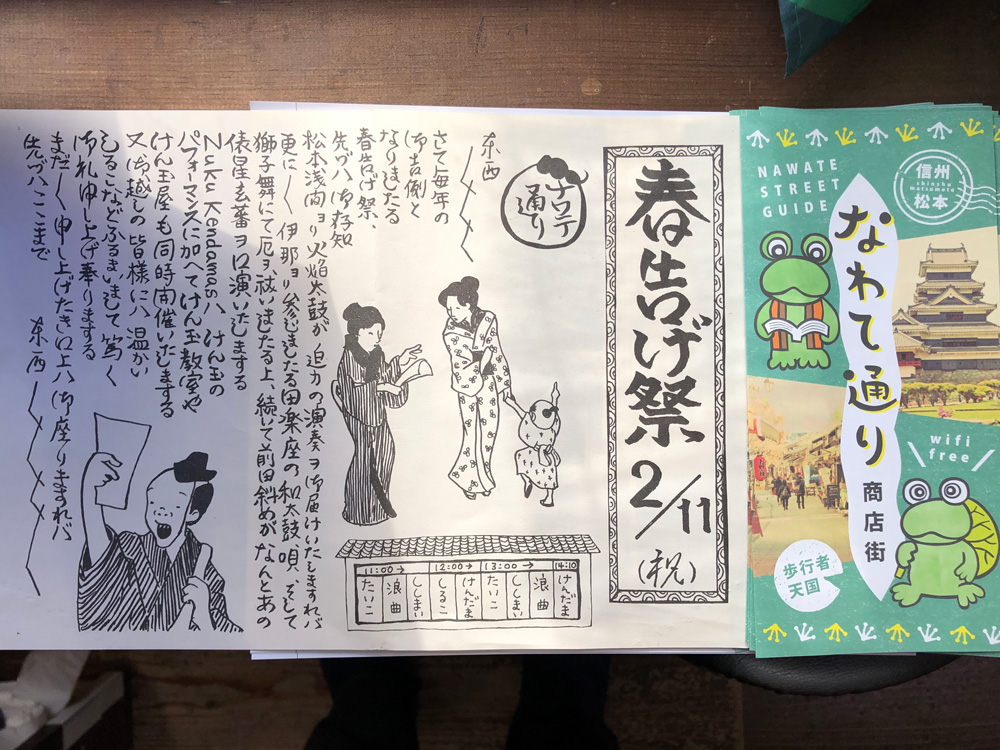 春告げ祭
2/11
(祝)
ナワテ
通り
東西
さて毎年の
御吉例と
なりましたる
春告げ祭、
先づハ御存知
松本浅間ヨリ火焔太鼓が迫力の演奏ヲ御届けいたしますれバ
更に〱伊那ヨリ参じましたる田楽座の和太鼓唄、そして
獅子舞にて厄ヲ祓いましたる上、続いて前田斜めがなんとあの
俵星玄蕃ヲ口演いたしまする
Zuku Kendamasハけん玉の
パフォーマンスに加へてけん玉教室や
けん玉屋も同時開催いたしまする
又お越しの皆様にハ温かい
しるこなどふるまいまして篤く
御礼申し上げ奉りまする
まだ〱申し上げたき口上ハ御座りますれバ
先づハここまで
東西
11:00→
12:00→
13:00→
14:10
たいこ
浪曲
ししまい
しるこ
けんだま
たいこ
ししまい
浪曲
けんだま
NAWATE
STREET
GUIDE
信州
shinshu
matsumoto
松本
なわて通り
商店街
wifi
free
歩行者
天国